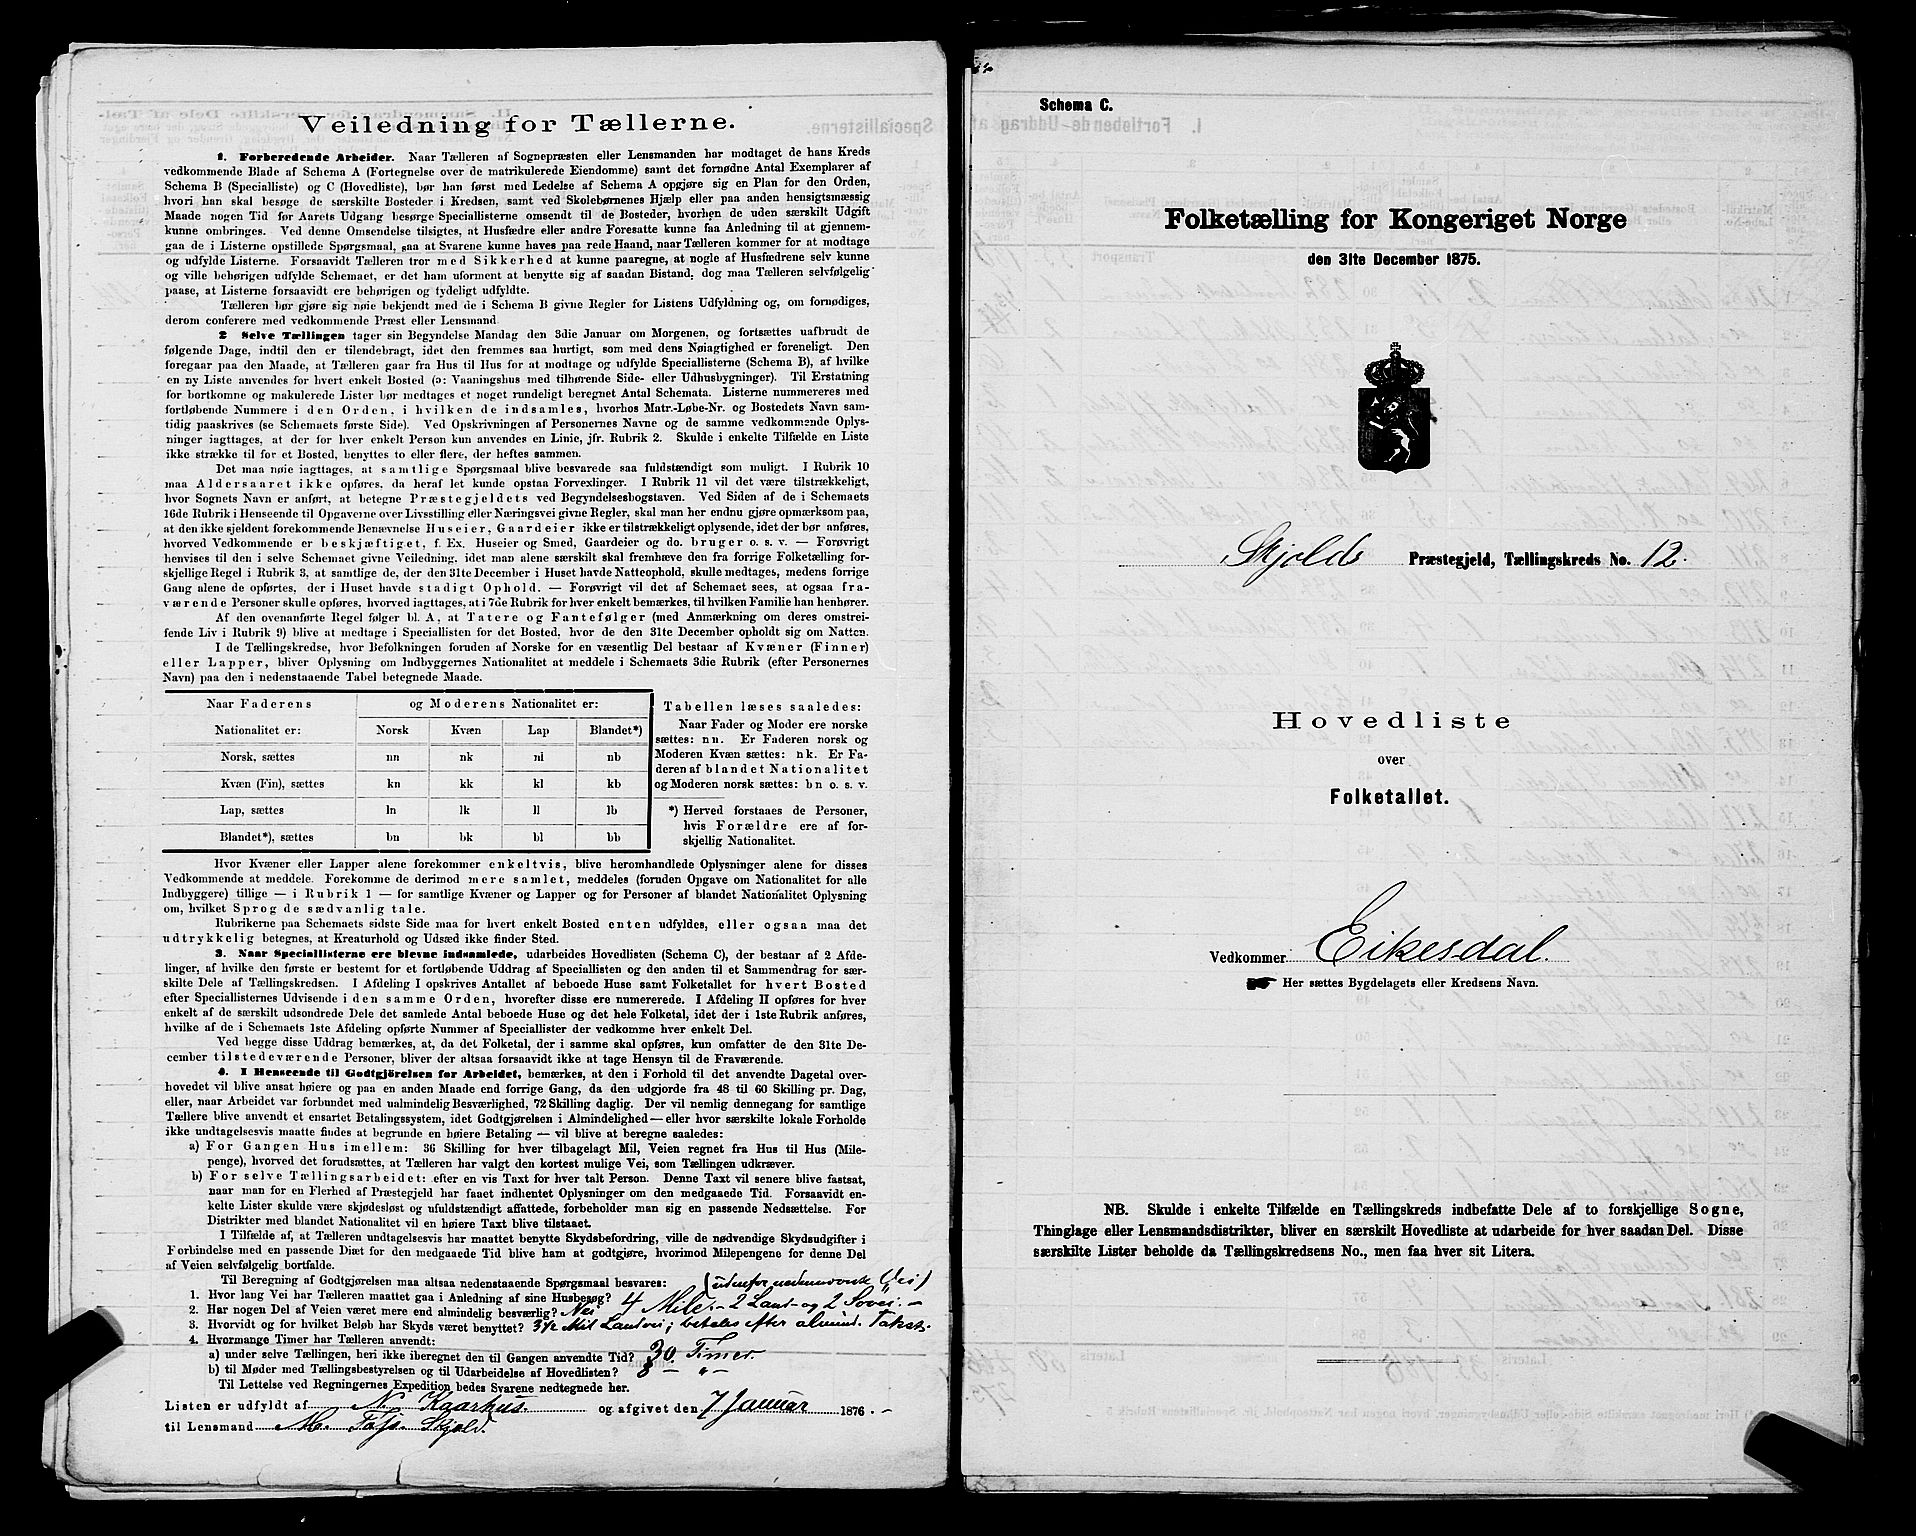 Veiledning for Tællerne.
1. Forberedende Arbeider. Naar Tælleren af Sognepræsten eller Lensmanden har modtaget de hans Kreds
vedkommende Blade af Schema A (Fortegnelse over de matrikulerede Eiendomme) samt det fornødne Antal Exemplarer af
Schema B (Specialliste) og C (Hovedliste), bør han først med Ledelse af Schema A opgjøre sig en Plan for den Orden,
hvori han skal besøge de særskilte Bosteder i Kredsen, samt ved Skolebørnenes Hjælp eller paa anden hensigtsmæssig
Maade nogen Tid før Aarets Udgang besørge Speciallisterne omsendt til de Bosteder, hvorhen de uden særskilt Udgift
kunne ombringes. Ved denne Omsendelse tilsigtes, at Husfædre eller andre Foresatte kunne faa Anledning til at gjennem-
gaa de i Listerne opstillede Spørgsmaal, saa at Svarene kunne haves paa rede Haand, naar Tælleren kommer for at modtage
og udfylde Listerne. Forsaavidt Tælleren tror med Sikkerhed at kunne paaregne, at nogle af Husfædrene selv kunne
og ville behørigen udfylde Schemaet, er det ham uforment at benytte sig af saadan Bistand, dog maa Tælleren selvfølgelig
paase, at Listerne forsaavidt ere behørigen og tydeligt udfyldte.
Tælleren bør gjøre sig nøie bekjendt med de i Schema B givne Regler for Listens Udfyldning og, om fornødiges,
derom conferere med vedkommende Præst eller Lensmand
2 Selve Tællingen tager sin Begyndelse Mandag den 3die Januar om Morgenen, og fortsættes uafbrudt de
følgende Dage, indtil den er tilendebragt, idet den fremmes saa hurtigt, som med dens Nøiagtighed er foreneligt. Den
foregaar paa den Maade, at Tælleren gaar fra Hus til Hus for at modtage og udfylde Speciallisterne (Schema B), af hvilke
en ny Liste anvendes for hvert enkelt Bosted (ɔ: Vaaningshus med tilhørende Side- eller Udhusbygninger). Til Erstatning
for bortkomne og makulerede Lister bør medtages et noget rundeligt beregnet Antal Schemata. Listerne nummereres med
fortløbende Nummere i den Orden, i hvilken de indsamles, hvorhos Matr.-Løbe-Nr. og Bostedets Navn sam-
tidig paaskrives (se Schemaets første Side). Ved Opskrivningen af Personernes Navne og de samme vedkommende Oplys-
ninger iagttages, at der for hver enkelt Person kun anvendes en Linie, jfr. Rubrik 2. Skulde i enkelte Tilfælde en Liste
ikke strække til for et Bosted, benyttes to eller flere, der heftes sammen.
Det maa nøie iagttages, at samtlige Spørgsmaal blive besvarede saa fuldstændigt som muligt. I Rubrik 10
maa Aldersaaret ikke opføres, da heraf let kunde opstaa Forvexlinger. I Rubrik 11 vil det være tilstrækkeligt,
hvor Sognets Navn er anført, at betegne Præstegjeldets ved Begyndelsesbogstaven. Ved Siden af de i Schemaets
16de Rubrik i Henseende til Opgaverne over Livsstilling eller Næringsvei givne Regler, skal man her endnu gjøre opmærksom paa,
at den ikke sjeldent forekommende Benævnelse Huseier, Gaardeier ikke er tilstrækkeligt oplysende, idet der bør anføres,
hvorved Vedkommende er beskjæftiget, f. Ex. Huseier og Smed, Gaardeier og do. bruger o. s. v. — Forøvrigt
henvises til den i selve Schemaet givne Veiledning, idet man alene særskilt skal fremhæve den fra forrige Folketælling for-
skjellige Regel i Rubrik 3, at samtlige de, der den 31te December i Huset havde Natteophold, skulle medtages, medens forrige
Gang alene de opførtes, der i Huset havde stadigt Ophold. — Forøvrigt vil det af Schemaet sees, at ogsaa fra-
værende Personer skulle opføres, hvorved iagttages, at i 7de Rubrik for hver enkelt bemærkes, til hvilken Familie han henhører.
Af den ovenanførte Regel følger bl. A, at Tatere og Fantefølger (med Anmærkning om deres omstrei-
fende Liv i Rubrik 9) blive at medtage i Speciallisten for det Bosted, hvor de den 31te December opholdt sig om Natten.
I de Tællingskredse, hvor Befolkningen foruden af Norske for en væsentlig Del bestaar af Kvæner (Finner)
eller Lapper, bliver Oplysning om Indbyggernes Nationalitet at meddele i Schemaets 3die Rubrik (efter Personernes
Navn) paa den i nedenstaaende Tabel betegnede Maade.
Naar Faderens og Moderens Nationalitet er:
Nationalitet er: Norsk Kvæn Lap Blandet*)
Norsk, sættes nn nk nl nb
Kvæn (Fin), sættes kn kk kl kb
Lap, sættes ln lk ll lb
Blandet*), sættes bn bk bl bb
Tabellen læses saaledes:
Naar Fader og Moder ere norske
sættes: nn. Er Faderen norsk og
Moderen Kvæn sættes: nk. Er Fa-
deren af blandet Nationalitet
og Moderen norsk sættes: bn o. s. v.
*) Herved forstaaes de Personer,
hvis Forældre ere af for-
skjellig Nationalitet.
Hvor Kvæner eller Lapper alene forekommer enkeltvis, blive heromhandlede Oplysninger alene for disses
Vedkommende at meddele. Forekomme de derimod mere samlet, meddeles (foruden Opgave om Nationalitet for alle
Indbyggere) tillige — i Rubrik 1 — for samtlige Kvæner og Lapper og for Personer af blandet Nationalitet Oplysning
om, hvilket Sprog de sædvanlig tale.
Rubrikerne paa Schemaets sidste Side maa for hvert enkelt Bosted enten udfyldes, eller ogsaa maa det
udtrykkelig betegnes, at Kreaturhold og Udsæd ikke finder Sted.
3. Naar Speciallisterne ere blevne indsamlede, udarbeides Hovedlisten (Schema C), der bestaar af 2 Afde-
linger, af hvilke den første er bestemt for et fortløbende Uddrag af Speciallisten og den anden til et Sammendrag for sær-
skilte Dele af Tællingskredsen. I Afdeling I opskrives Antallet af beboede Huse samt Folketallet for hvert Bosted
efter Speciallisternes Udvisende i den samme Orden, hvorefter disse ere numererede. I Afdeling II opføres for hver
enkelt af de særskilt udsondrede Dele det samlede Antal beboede Huse og det hele Folketal, idet der i 1ste Rubrik anføres,
hvilke af de i Schemaets 1ste Afdeling opførte Nummer af Speciallister der vedkomme hver enkelt Del.
Ved begge disse Uddrag bemærkes, at, da det Folketal, der i samme skal opføres, kun omfatter de den 31te De-
cember tilstedeværende Personer, bliver der altsaa forsaavidt ikke at tage Hensyn til de Fraværende.
4. I Henseende til Godtgjörelsen for Arbeidet, bemærkes, at den i Forhold til det anvendte Dagetal over-
hovedet vil blive ansat høiere og paa en anden Maade end forrige Gang, da den udgjorde fra 48 til 60 Skilling pr. Dag,
eller, naar Arbeidet var forbundet med ualmindelig Besværlighed, 72 Skilling daglig. Der vil nemlig dennegang for samtlige
Tællere blive anvendt et ensartet Betalingssystem, idet Godtgjørelsen i Almindelighed — eller hvor særskilte lokale Forholde
ikke undtagelsesvis maatte findes at begrunde en høiere Betaling — vil blive at beregne saaledes:
a) For Gangen Hus imellem: 36 Skilling for hver tilbagelagt Mil, Veien regnet fra Hus til Hus (Mile-
penge), hvorved det forudsættes, at Tælleren har valgt den kortest mulige Vei, som Tællingen udkræver.
b) For selve Tællingsarbeidet: efter en vis Taxt for hver talt Person. Denne Taxt vil senere blive fastsat,
naar man for en Flerhed af Præstegjeld har faaet indhentet Oplysninger om den medgaaede Tid. Forsaavidt en-
kelte Lister skulde være skjødesløst og ufuldstændigt affattede, forbeholder man sig en passende Nedsættelse. For
Distrikter med blandet Nationalitet vil en høiere Taxt blive tilstaaet.
I Tilfælde af, at Tælleren undtagelsesvis har maattet benytte Skydsbefordring, ville de nødvendige Skydsudgifter i
Forbindelse med en passende Diæt for den medgaaede Tid blive ham at godtgjøre, hvorimod Milepengene for denne Del
af Veien selvfølgelig bortfalde.
Til Beregning af Godtgjørelsen maa altsaa nedenstaaende Spørgsmaal besvares:
1. Hvor lang Vei har Tælleren maattet gaa i Anledning af sine Husbesøg? 4 Mile.- 2 Land- og 2 Søvei.-
2. Har nogen Del af Veien været mere end almindelig besværlig? Nei
3. Hvorvidt og for hvilket Beløb har Skyds været benyttet? 3 1/2 Mil Landvei; betales efter almind. Takst.
4. Hvormange Timer har Tælleren anvendt:
a) under selve Tællingen, heri ikke iberegnet den til Gangen anvendte Tid? 30. Timer.
b) til Møder med Tællingsbestyrelsen og til Udarbeidelse af Hovedlisten? 8 — „ —
Til Lettelse ved Regningernes Expedition bedes Svarene nedtegnede her.
Listen er udfyldt af N. Kaarhus og afgivet den 7 Januar 1876. -
til Lensmand Skjold.
Schema C.
Folketælling for Kongeriget Norge
den 31te December 1875.
Skjolds Præstegjeld, Tællingskreds No. 12.
Hovedliste
over
Folketallet.
Vedkommer Eikesdal.
Her sættes Bygdelagets eller Kredsens Navn.
NB. Skulde i enkelte Tilfælde en Tællingskreds indbefatte Dele af to forskjellige Sogne,
Thinglage eller Lensmandsdistrikter, bliver en særskilt Hovedliste at udarbeide for hver saadan Del. Disse
særskilte Lister beholde da Tællingskredsens No., men faa hver sit Litera.